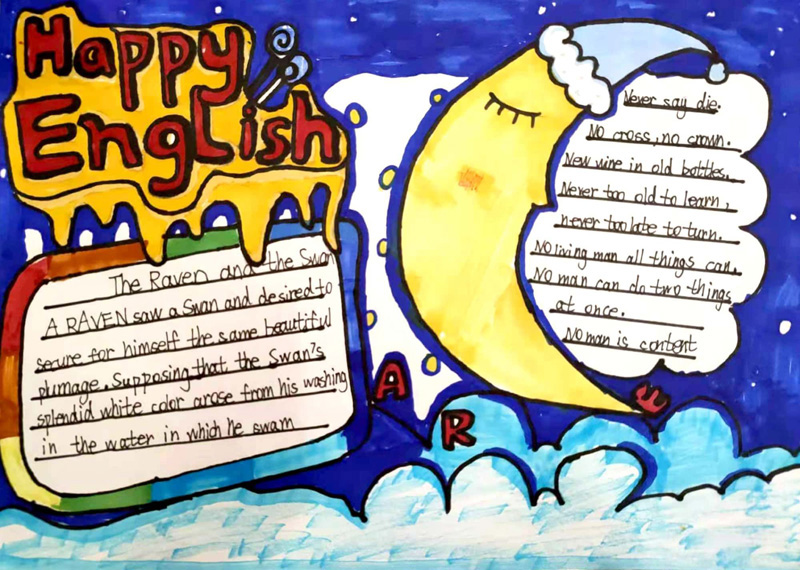 Happy
English
The Raven and the Swan
A RAVEN saw a Swan and desired to
secure for himself the same beautiful
plumage. Supposing that the Swan's
splendid white color arose from his washing
in the water in which he swam
Never say die.
No cross, no crown.
New wine in old bottles.
Never too old to learn,
never too late to turn.
No living man all things can.
No man can do two things
at once.
No man is content
A
R
E